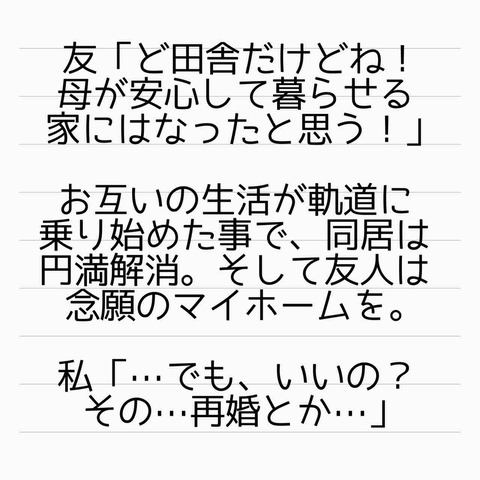 友「ど田舎だけどね！
母が安心して暮らせる
家にはなったと思う！」
お互いの生活が軌道に
乗り始めた事で、同居は
円満解消。そして友人は
念願のマイホームを。
私「…でも、いいの？
その…再婚とか…」